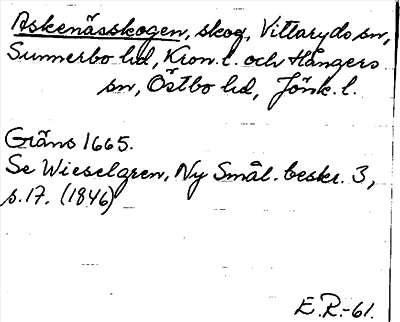 Askenässkogen, skog, Vittaryds sn,
Sunnerbo hd, Kron. l. och Hångers
sn, Östbo hd, Jönk. l.
Gräns 1665.
Se Wieselgren, Ny Smål. beskr. 3,
s. 17. (1846)
E.R.-61.